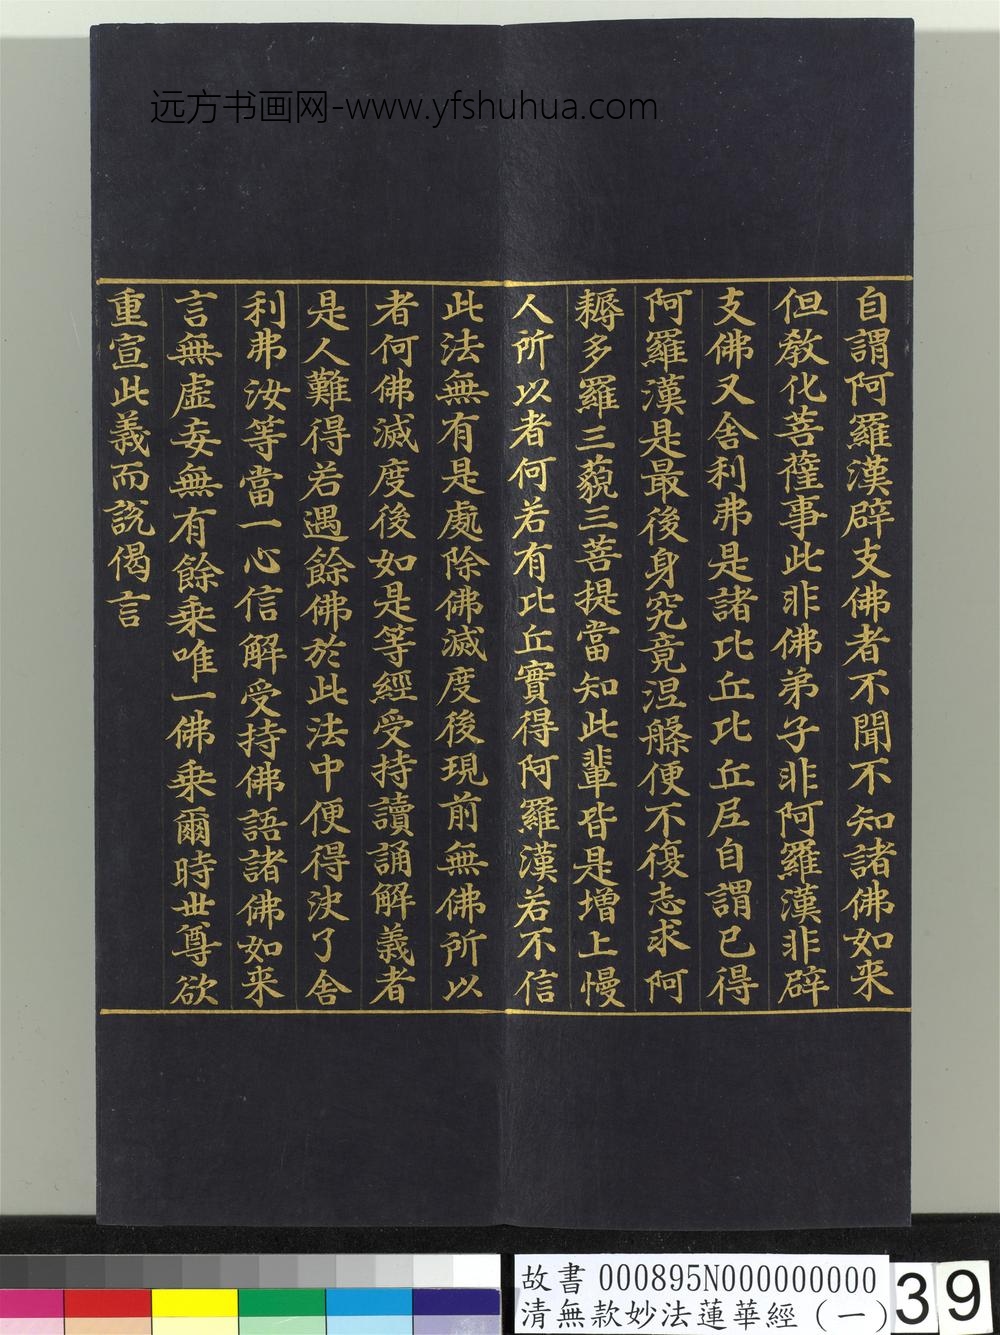 远方书画网-www.yfshuhua.com
自謂阿羅漢辟支佛者不聞不知諸佛如来
但教化菩薩事此非佛弟子非阿羅漢非辟
支佛又舍利弗是諸比丘比丘尼自謂已得
阿羅漢是最後身究竟涅槃便不復志求阿
耨多羅三藐三菩提當知此輩皆是增上慢
人所以者何若有比丘實得阿羅漢若不信
此法無有是處除佛滅度後現前無佛所以
者何佛滅度後如是等經受持讀誦解義者
是人難得若遇餘佛於此法中便得決了舍
利弗汝等當一心信解受持佛語諸佛如来
言無虛妄無有餘乗唯一佛乗爾時世尊欲
重宣此義而說偈言
故書 000895N000000000
清無款妙法蓮華經（一）
39